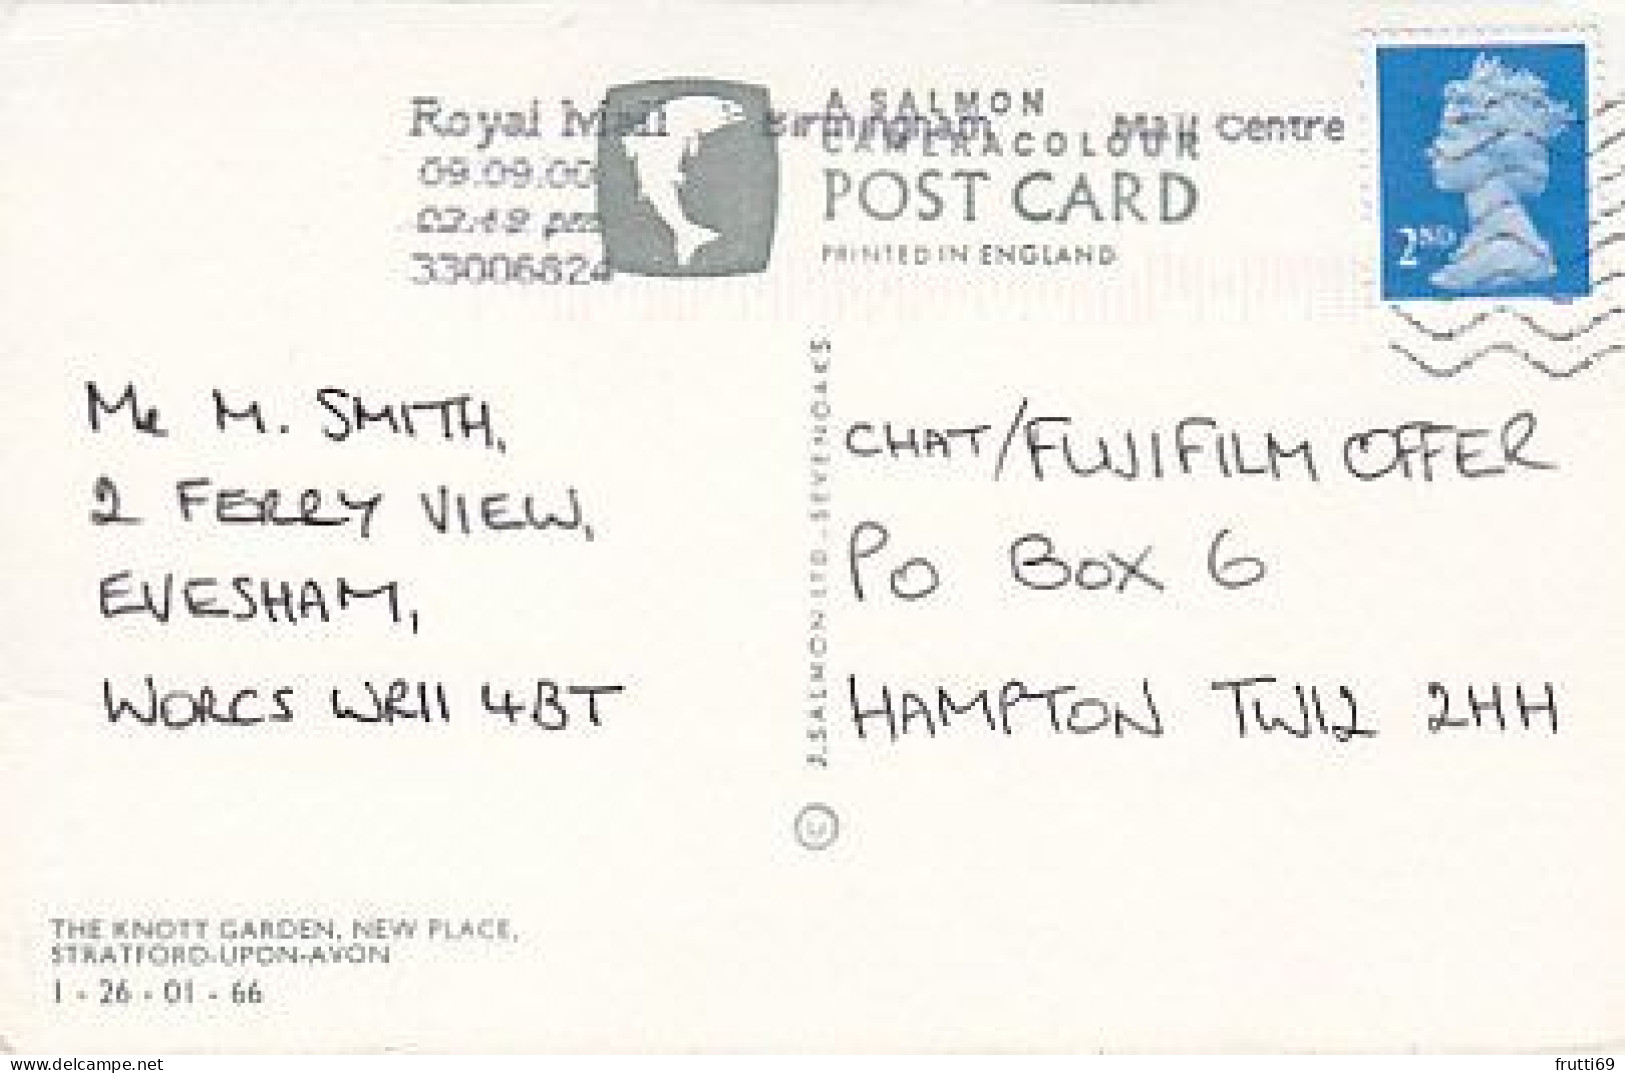 Royal Mail Birmingham Mail Centre
09.09.00
02:49 pm
33006824
A SALMON
CAMERACOLOUR
POST CARD
PRINTED IN ENGLAND
2ND
Mr M. SMITH,
2 FERRY VIEW,
EVESHAM,
WORCS WR11 4BT
J. SALMON LTD., SEVENOAKS
©
CHAT/FUJIFILM OFFER
PO BOX 6
HAMPTON TW12 2HH
THE KNOTT GARDEN, NEW PLACE,
STRATFORD-UPON-AVON
1 - 26 - 01 - 66
delcampe.net
frutti69